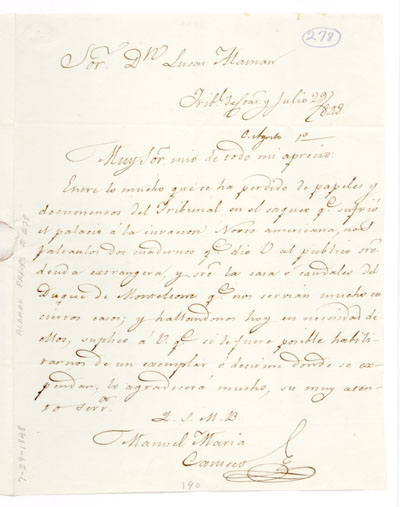 278
Sor. Dn Lucas Alaman
Tribl. de Cas. y Julio 29/848
C. Agosto 1º
Muy Sor mio de todo mi aprecio:
Entre lo mucho que se ha perdido de papeles y
documentos del Tribunal en el saqueo qe. sufrió
el palacio á la invacion Norte americana, nos
faltan los dos cuadernos qe. dió V al público sre.
deuda extrangera, y sre la casa ó caudales del
Duque de Monteleone qe. nos servian mucho en
ciertos casos; y hallandonos hoy en necesidad de
ellos, suplico á V. qe. si le fuere posible habili-
tarnos de un exemplar ó decirme donde se ex-
pendan, lo agradecerá mucho, su muy aten-
to serr.or
Q. S. M. B
Manuel Maria
Canseco
190
ALAMAN PAPERS # 278
7-29-1848